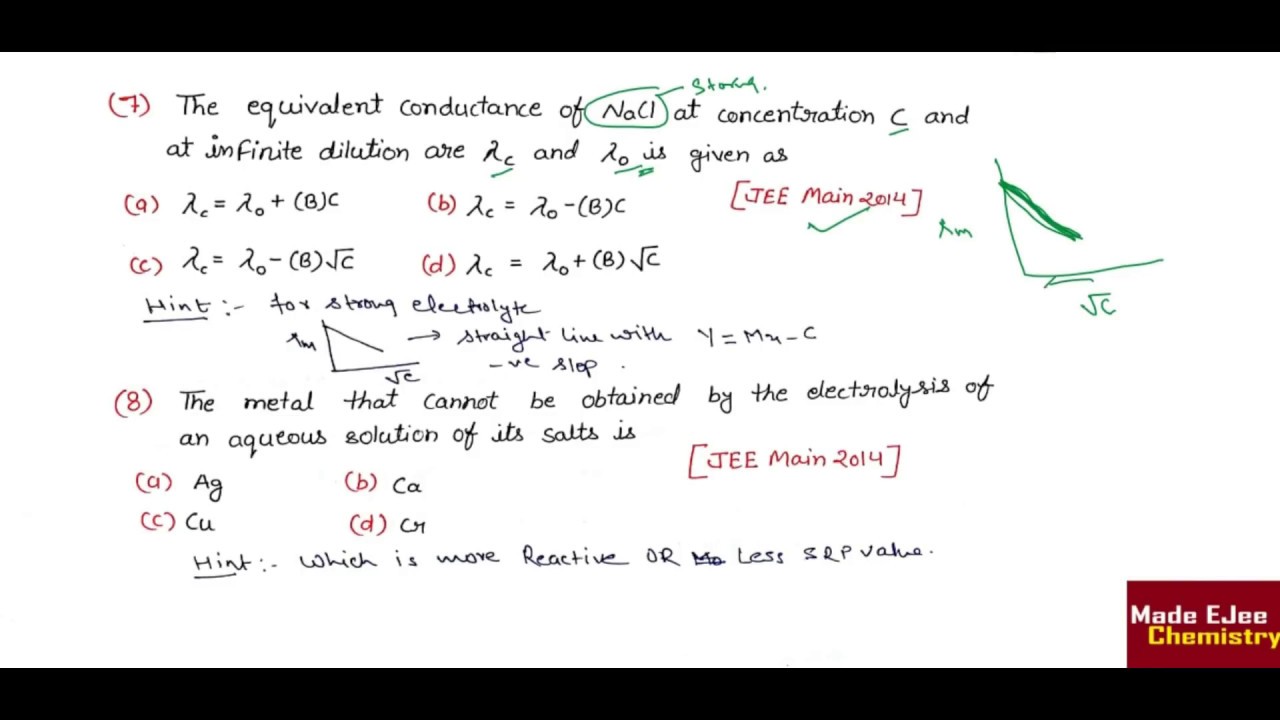 Strong.
(7) The equivalent conductance of NaCl at concentration C and
at infinite dilution are λc and λ₀ is given as
(a) λc = λ₀ + (B)C (b) λc = λ₀ - (B)C [JEE Main 2014]
(c) λc = λ₀ - (B)√C (d) λc = λ₀ + (B)√C
λm
√C
Hint :- for strong electrolyte
λm → straight line with Y = Mx - C
√C -ve slop .
(8) The metal that cannot be obtained by the electrolysis of
an aqueous solution of its salts is
[JEE Main 2014]
(a) Ag (b) Ca
(c) Cu (d) Cr
Hint :- Which is more Reactive OR Less SRP value.
Made EJee
Chemistry